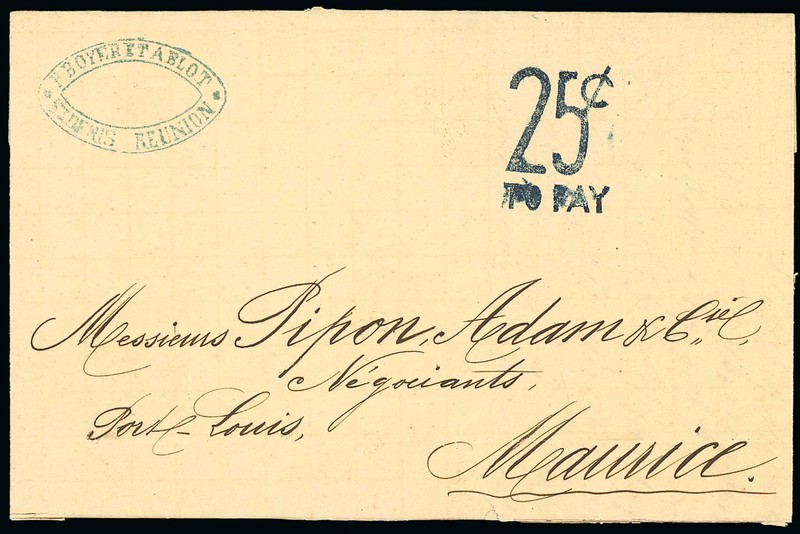 P BOYER ET ABLOT
ST DENIS REUNION
25¢
TO PAY
Messieurs Pipon, Adam & Cie,
Négociants,
Port-Louis,
Maurice.